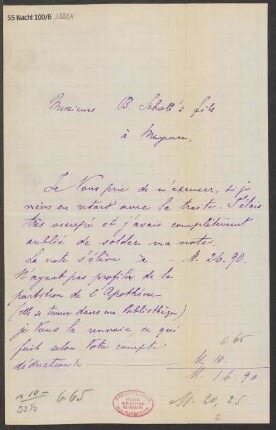 55 Nachl 100/B
Messieurs B. Schott's fils
à Mayence.
Je Vous prie de m'excuser, si je
viens en retard avec la traite. J'étais
très occupé et j'avais complètement
oublié de solder ma note.
La note s'élève à M. 26.90.
N'ayant pas profité de la
partition de l'Apothéose
(elle se trouve dans ma Bibliothèque)
je Vous la renvoie, ce qui
fait selon Votre compte
déduction
6 65
M. 10.
M. 16.90
M. 20,25
6.65